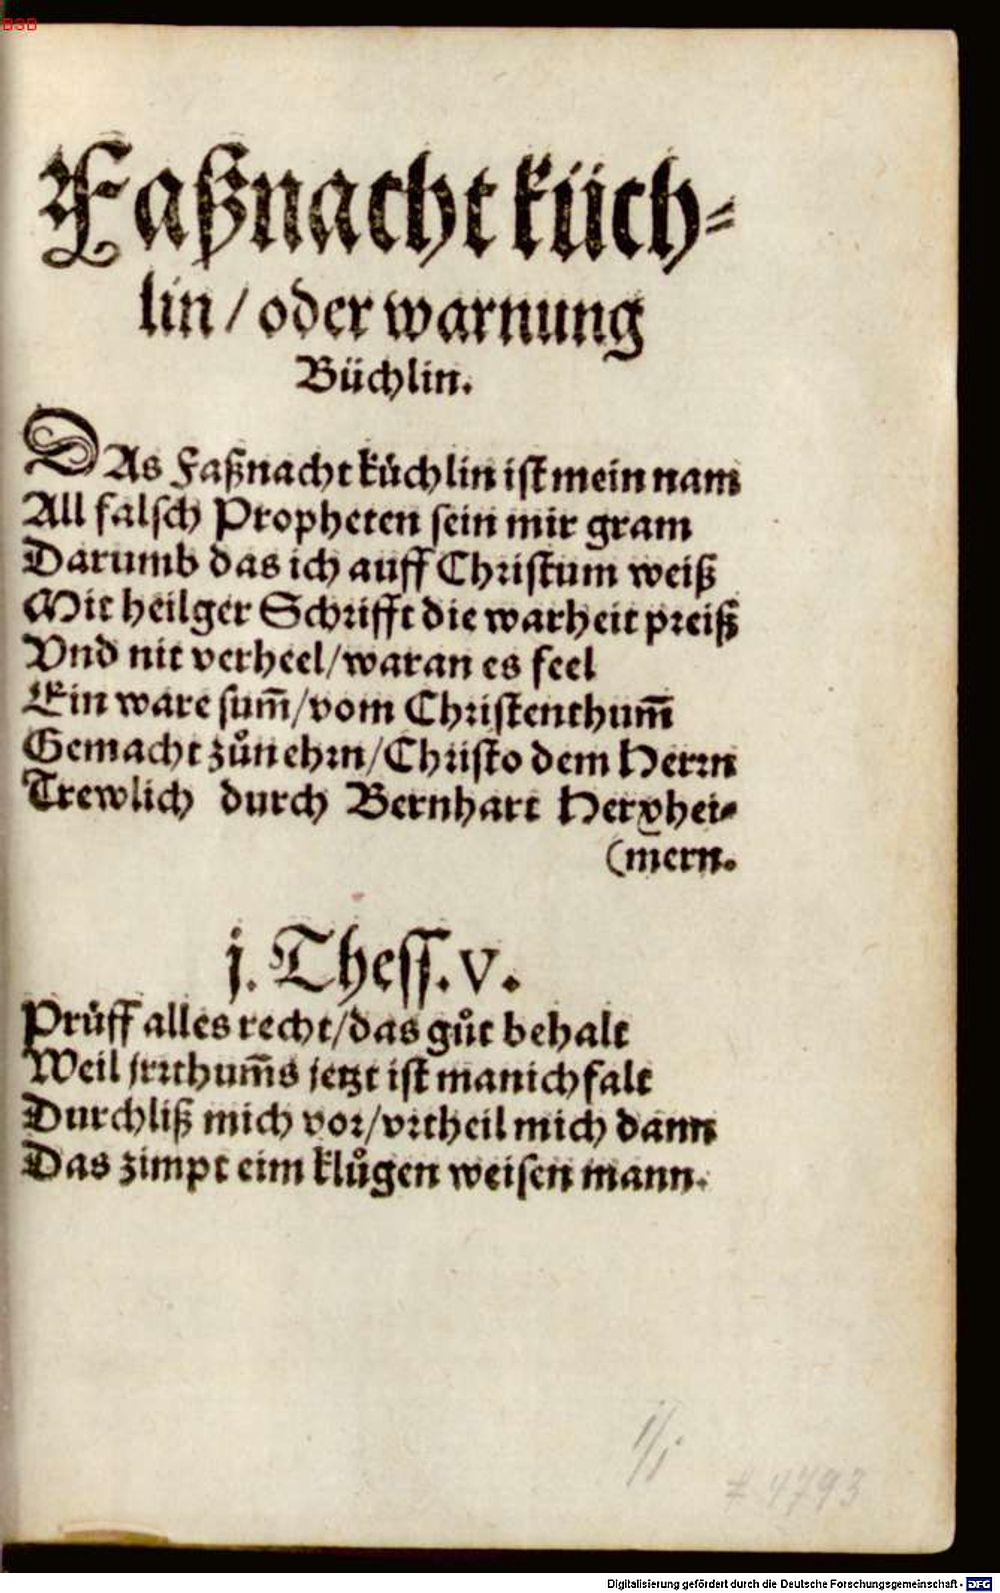 BSB
Faßnacht küch-
lin / oder warnung
Büchlin.
DAs Faßnacht küchlin ist mein nam
All falsch Propheten sein mir gram
Darumb das ich auff Christum weiß
Mit heilger Schrifft die warheit preiß
Vnd nit verheel/waran es feel
Ein ware sum̃/vom Christenthum̃
Gemacht zůn ehrn/Christo dem Herrn
Trewlich durch Bernhart Herxhei-
(mern.
j. Thess. v.
Prüff alles recht/das gůt behalt
Weil jrrthum̃s jetzt ist manichfalt
Durchliß mich vor/vrtheil mich dann
Das zimpt eim klůgen weisen mann.
# 4793
Digitalisierung gefördert durch die Deutsche Forschungsgemeinschaft - DFG